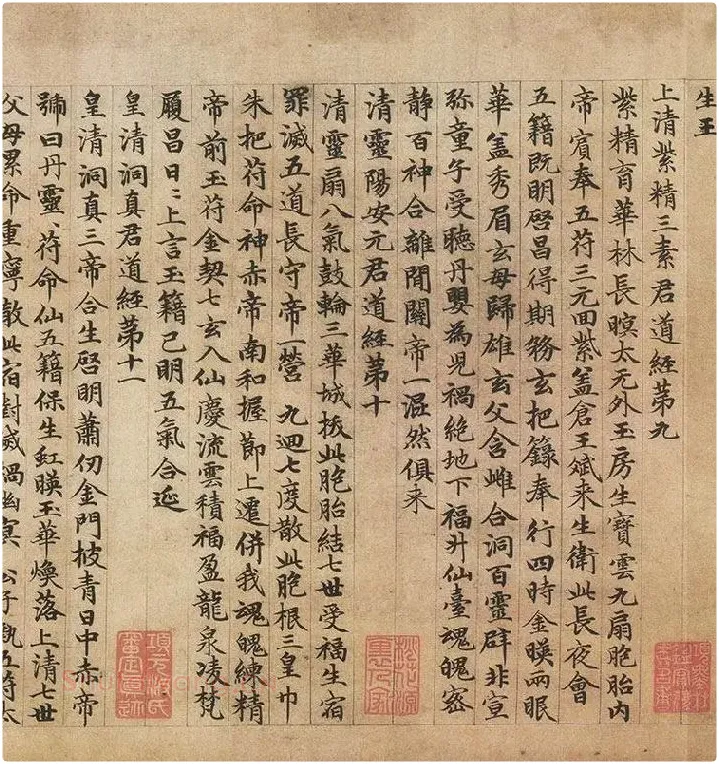 生王
上清紫精三素君道經第九
紫精育華林長暝太无外玉房生寶雲九扇胞胎內
帝賔奉五符三元回紫盖倉王斌来生衛此長夜會
五籍既明啓昌得期務玄把籙奉行四時金暎兩眼
華盖秀眉玄母歸雄玄父含雌合洞百靈辟非宣
弥童子受聴丹嬰為児禍絶地下福升仙臺魂魄密
静百神合離閒關帝一混然俱来
清靈陽安元君道經第十
清靈扇八氣鼓輪三華城拔此胞胎結七世受福生宿
罪滅五道長守帝一營 九迴七度散此胞根三皇巾
朱把苻命神赤帝南和握節上遷併我魂魄練精
帝前玉苻金契七玄入仙慶流雲積福盈龍泉凌梵
履昌日〻上言玉籍已明五氣合延
皇清洞真君道經第十一
皇清洞真三帝合生啓明蕭仞金門披青日中赤帝
號曰丹靈〻苻命仙五籍保生虹暎玉華煥落上清七世
父母累命重寧散此宿對滅禍幽冥 公子執五苻太